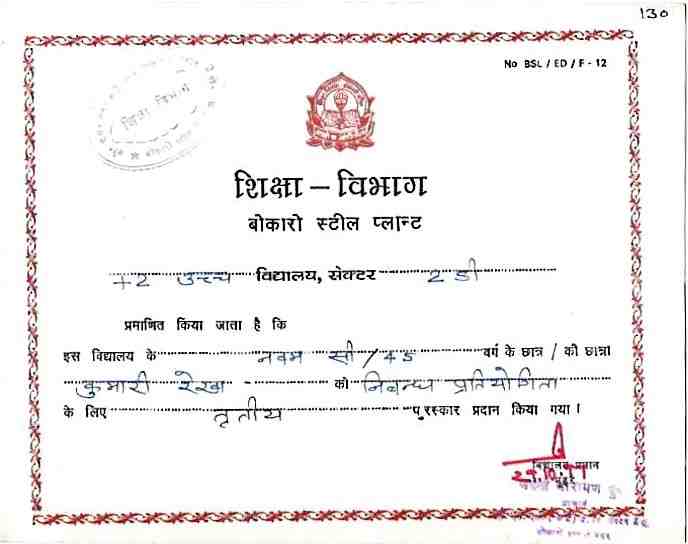 130
No BSL / ED / F - 12
शिक्षा विभाग
शिक्षा – विभाग
बोकारो स्टील प्लान्ट
+2 उच्च विद्यालय, सेक्टर 2 डी
प्रमाणित किया जाता है कि
इस विद्यालय के नवम सी / 45 वर्ग के छात्र / की छात्रा
कुमारी रेखा को निबन्ध प्रतियोगिता
के लिए तृतीय पुरस्कार प्रदान किया गया ।
विद्यालय प्रधान